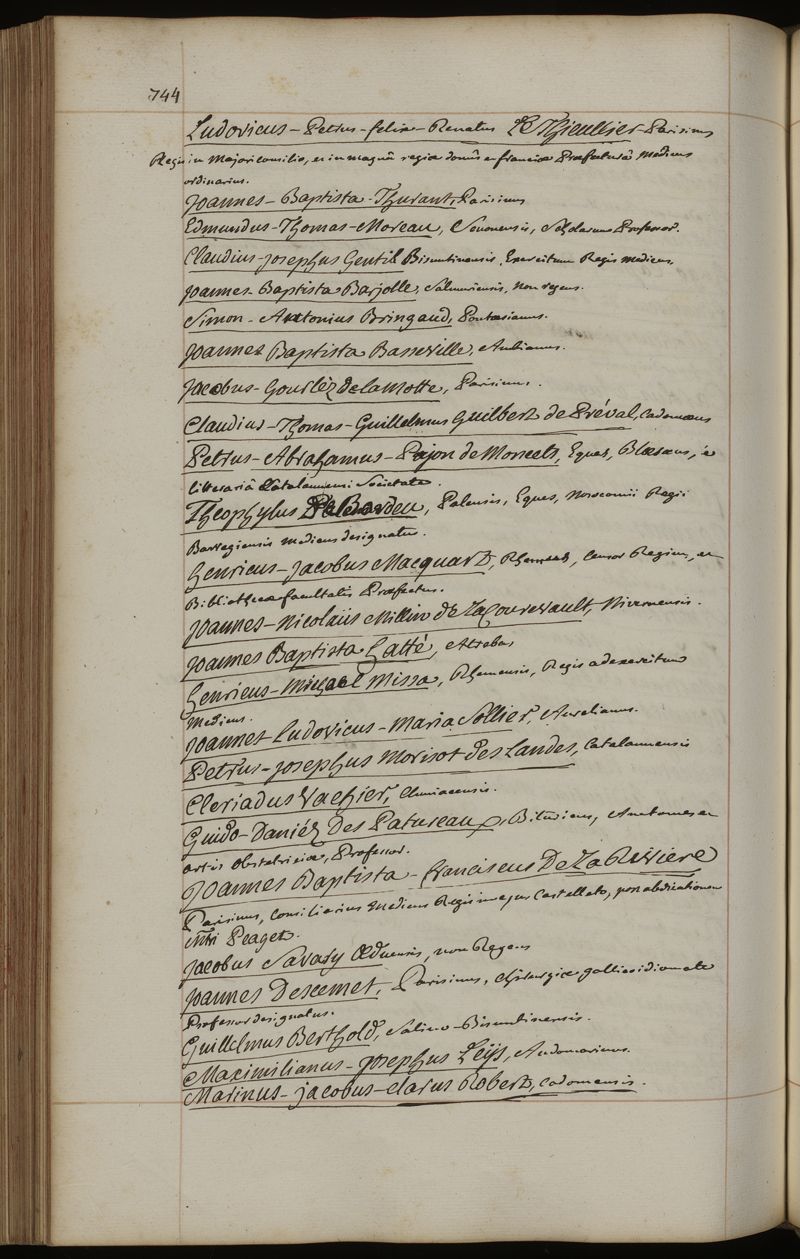 744
Ludovicus-Petrus-felix-Renatus Le Thieullier Parisinus
Regis in Majori consilio, et in magnâ regiæ domûs et franciæ Præfecturâ Medicus
ordinarius.
Joannes-Baptista-Thurant, Parisinus
Edmundus-Thomas-Moreau, Senonensis, Scholarum Professor.
Claudius-josephus Gentil Bisuntinensis, Exercituum Regis medicus.
joannes-Baptista Barjolle, Salmuriensis, non regens.
Simon-Antonius Bringaud, Pontesianus.
joannes Baptista Basseville, Ambianus.
Jacobus-Gourlèz de la Motte, Parisinus.
Claudius-Thomas-Guillelmus Guilbert de Préval, Cadomæus
Petrus-Abrahamus-Pajon de Moncets, Eques, Blæsæus, è
litterariâ Catalaunensi Societate.
Theophylus De Bordeu, Palensis, Eques, Nosocomii Regii
Barregiensis medicus designatus.
henricus-jacobus Macquart, Rhemensis, Censor Regius, et
Bibliothecæ facultatis Præfectus.
joannes-Nicolaüs Millin de La Courvault, Nivernensis.
joannes Baptista Hatté, Atrebas
henricus-Michael Missa, Rhemensis, Regis ad exercitum
medicus.
joannes Ludovicus-Maria Sollier, Aurelianus.
Petrus-josephus Morisot des Landes, Catalaunensis
Cleriadus Vachier, Cluniacensis.
Guido-Daniéz Des Patureaux, Bituricus, Anatomes et
artis obstetriciæ, Professor.
Joannes Baptista-franciscus De La Riviere
Parisinus, Consiliarius Medicus Regis in ejus Castelleto, post abdicationem
mtri Peaget.
jacobus Savary Æduensis, non Regens
joannes Descemet, Parisinus, chirurgiæ gallico idiomate
Professor designatus.
Guillelmus Berthold, Salino-Bisuntinensis.
Maximilianus-josephus Leijs, Audomarinus.
Marinus-jacobus-clarus Robert, Cadomensis.